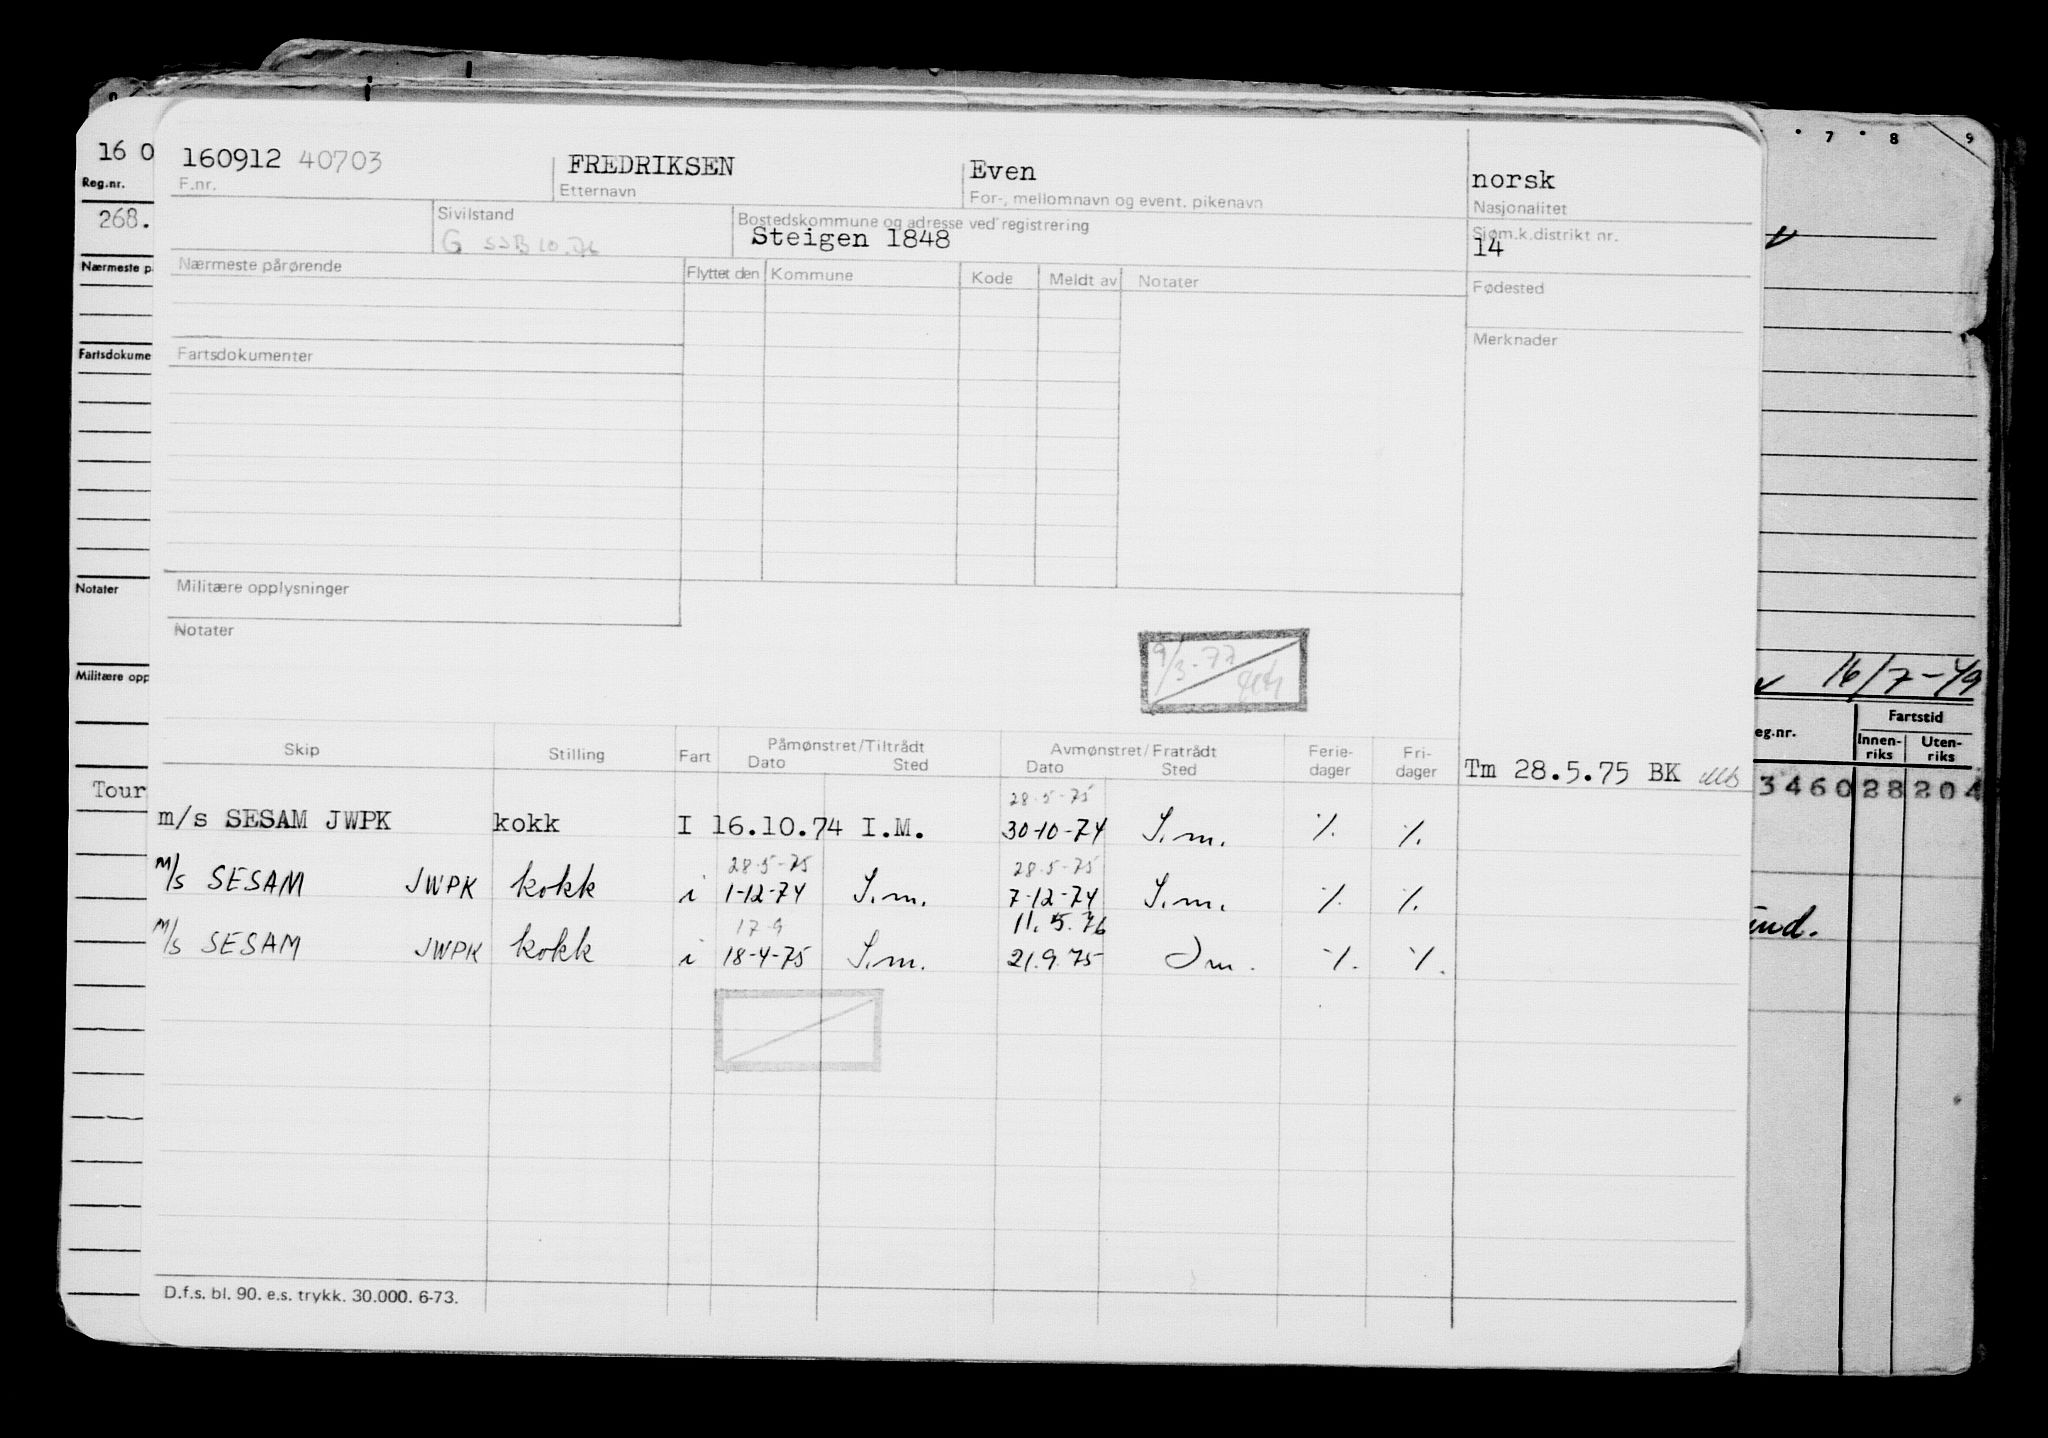 7 8 9
16 0
Reg.nr.
268.
Nærmeste p
Fartsdokume
Notater
Militære opp
Tour
160912 40703 FREDRIKSEN Even norsk
F.nr. Etternavn For-, mellomnavn og event. pikenavn Nasjonalitet
Sivilstand Bostedskommune og adresse ved registrering Sjøm.k.distrikt nr.
G SJB 10.76 Steigen 1848 14
Nærmeste pårørende Flyttet den Kommune Kode Meldt av Notater Fødested
Fartsdokumenter Merknader
Militære opplysninger
Notater
9/3-77
Skip Stilling Fart Påmønstret/Tiltrådt Avmønstret/Fratrådt Ferie- Fri-
Dato Sted Dato Sted dager dager
Tm 28.5.75 BK
28.5-75
m/s SESAM JWPK kokk I 16.10.74 I.M. 30-10-74 I.m. ⁒ ⁒
28.5-75 28.5-75
m/s SESAM JWPK kokk i 1-12-74 I.m. 7-12-74 I.m. ⁒ ⁒
17.9 11.5.76
m/s SESAM JWPK kokk i 18-4-75 I.m. 21.9.75 Im. ⁒ ⁒
D.f.s. bl. 90. e.s. trykk. 30.000. 6-73.
16/7-49
eg.nr. Fartstid
Innen-riks Uten-riks
3460 28 204
und.